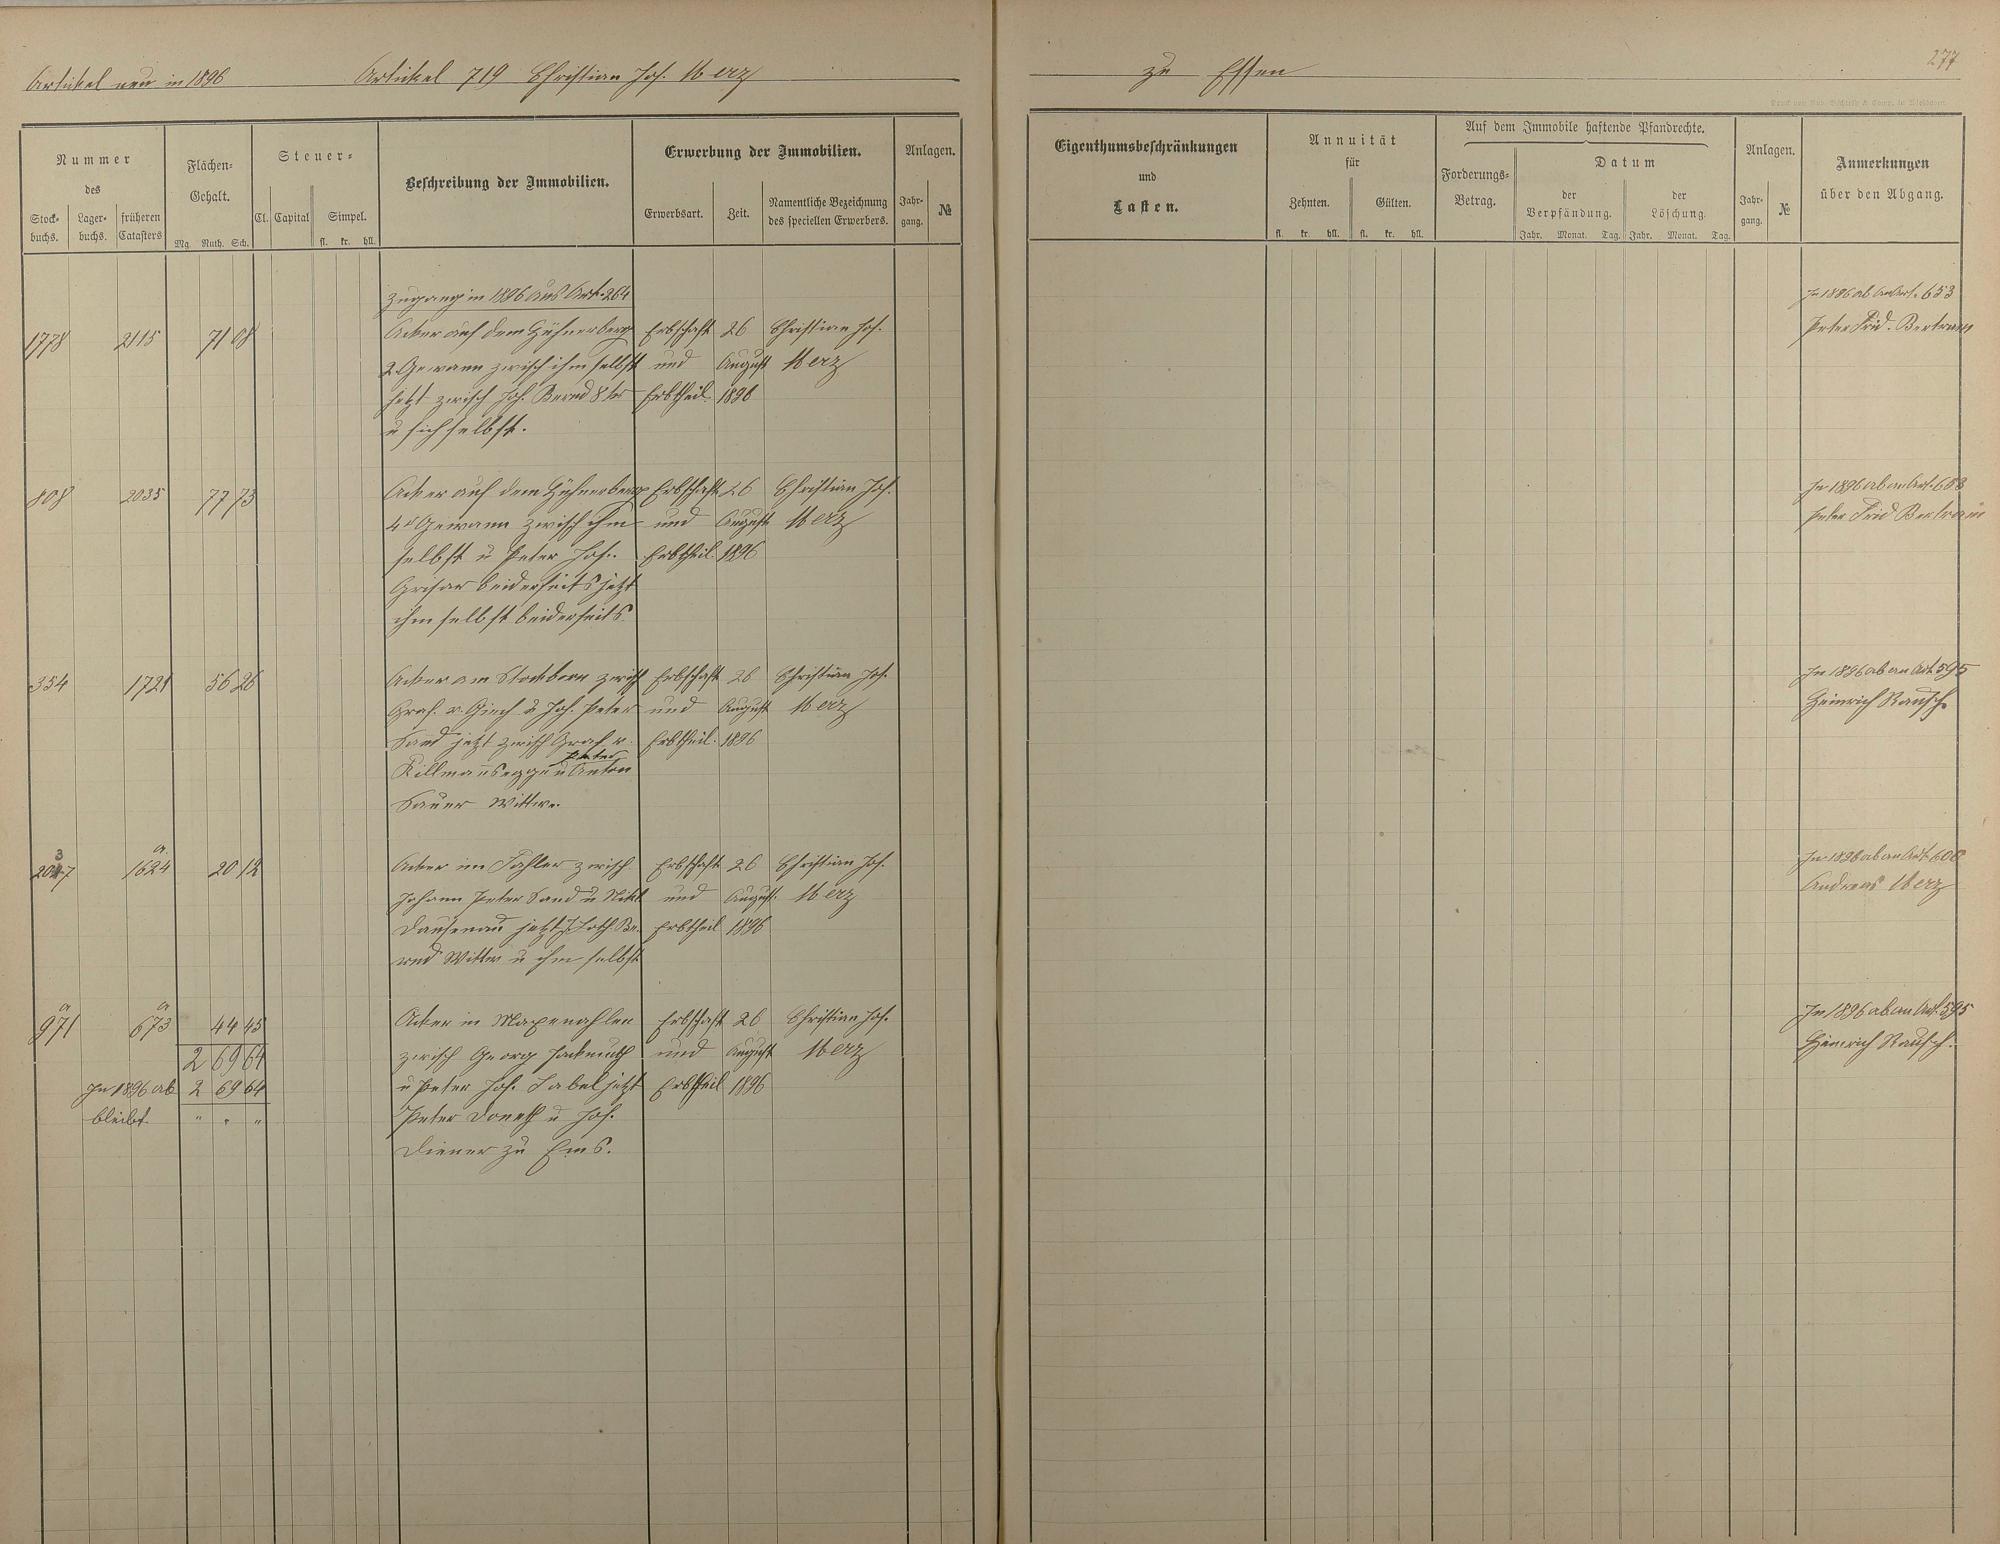 Artickel neu in 1896
Artickel 719 Christian Jos. Merz
zu Essen
277
Nummer
des
Stock-
buchs.
Lager-
buchs.
früheren
Catasters
Flächen-
Gehalt.
Mg. Ruth. Sch.
Steuer-
Cl. Capital Simpel.
fl. kr. hll.
Beschreibung der Immobilien.
Erwerbung der Immobilien.
Erwerbsart. Zeit.
Namentliche Bezeichnung
des speciellen Erwerbers.
Anlagen.
Jahr-
gang. №
Eigenthumsbeschränkungen
und
Lasten.
Annuität
für
Zehnten. Gülten.
fl. kr. hll. fl. kr. hll.
Auf dem Immobile haftende Pfandrechte.
Forderungs-
Betrag.
Datum
der
Verpfändung.
der
Löschung.
Jahr. Monat. Tag. Jahr. Monat. Tag.
Anlagen.
Jahr-
gang. №
Anmerkungen
über den Abgang.
Zugang in 1896 aus Art. 264
1778 2115 71 08 Acker auf dem Hühnerberg Erbschaft 26 Christian Jos.
2 Gewann zwisch ihm selbst und August Merz
jetzt zwisch Joh. Bernd 8ter Erbtheil. 1896
u sich selbst.
In 1896 ab an Art. 653
Peter Frid. Bertram
808 2035 77 73 Acker auf dem Hühnerberg Erbschaft 26 Christian Jos.
4r Gewann zwisch ihm und August Merz
selbst u Peter Jos. Erbtheil 1896
Grisar beiderseits jetzt
ihm selbst beiderseits
In 1896 ab an Art. 653
Peter Frid Bertram
354 1721 56 26 Acker am Stockborn zwisch Erbschaft 26 Christian Jos.
Graf. v. Giech u Joh. Peter und August Merz
Sand jetzt zwisch Graf v. Erbtheil. 1896
Peter
Killmansegge u Anton
Sauer Wittwe.
In 1896 ab an Art 595
Heinrich Rausch
3
2047 1624 a 20 12 Acker im zwisch Erbschaft 26 Christian Jos.
Johann Peter Sand u Nikl und August. Merz
Dausenau jetzt Be- Erbtheil 1896
rnd Wittw u ihm selbst
In 1896 ab an Art 606
Andreas Merz
971 a 673 a 44 45 Acker in Erbschaft 26 Christian Jos.
zwisch Georg und August Merz
u Peter Jos. jetzt Erbtheil 1896
Peter Doneth u Jos.
Diener zu Ems.
2 69 64
In 1896 ab 2 69 64
bleibt " " "
In 1896 ab an Art. 595
Heinrich Rausch.